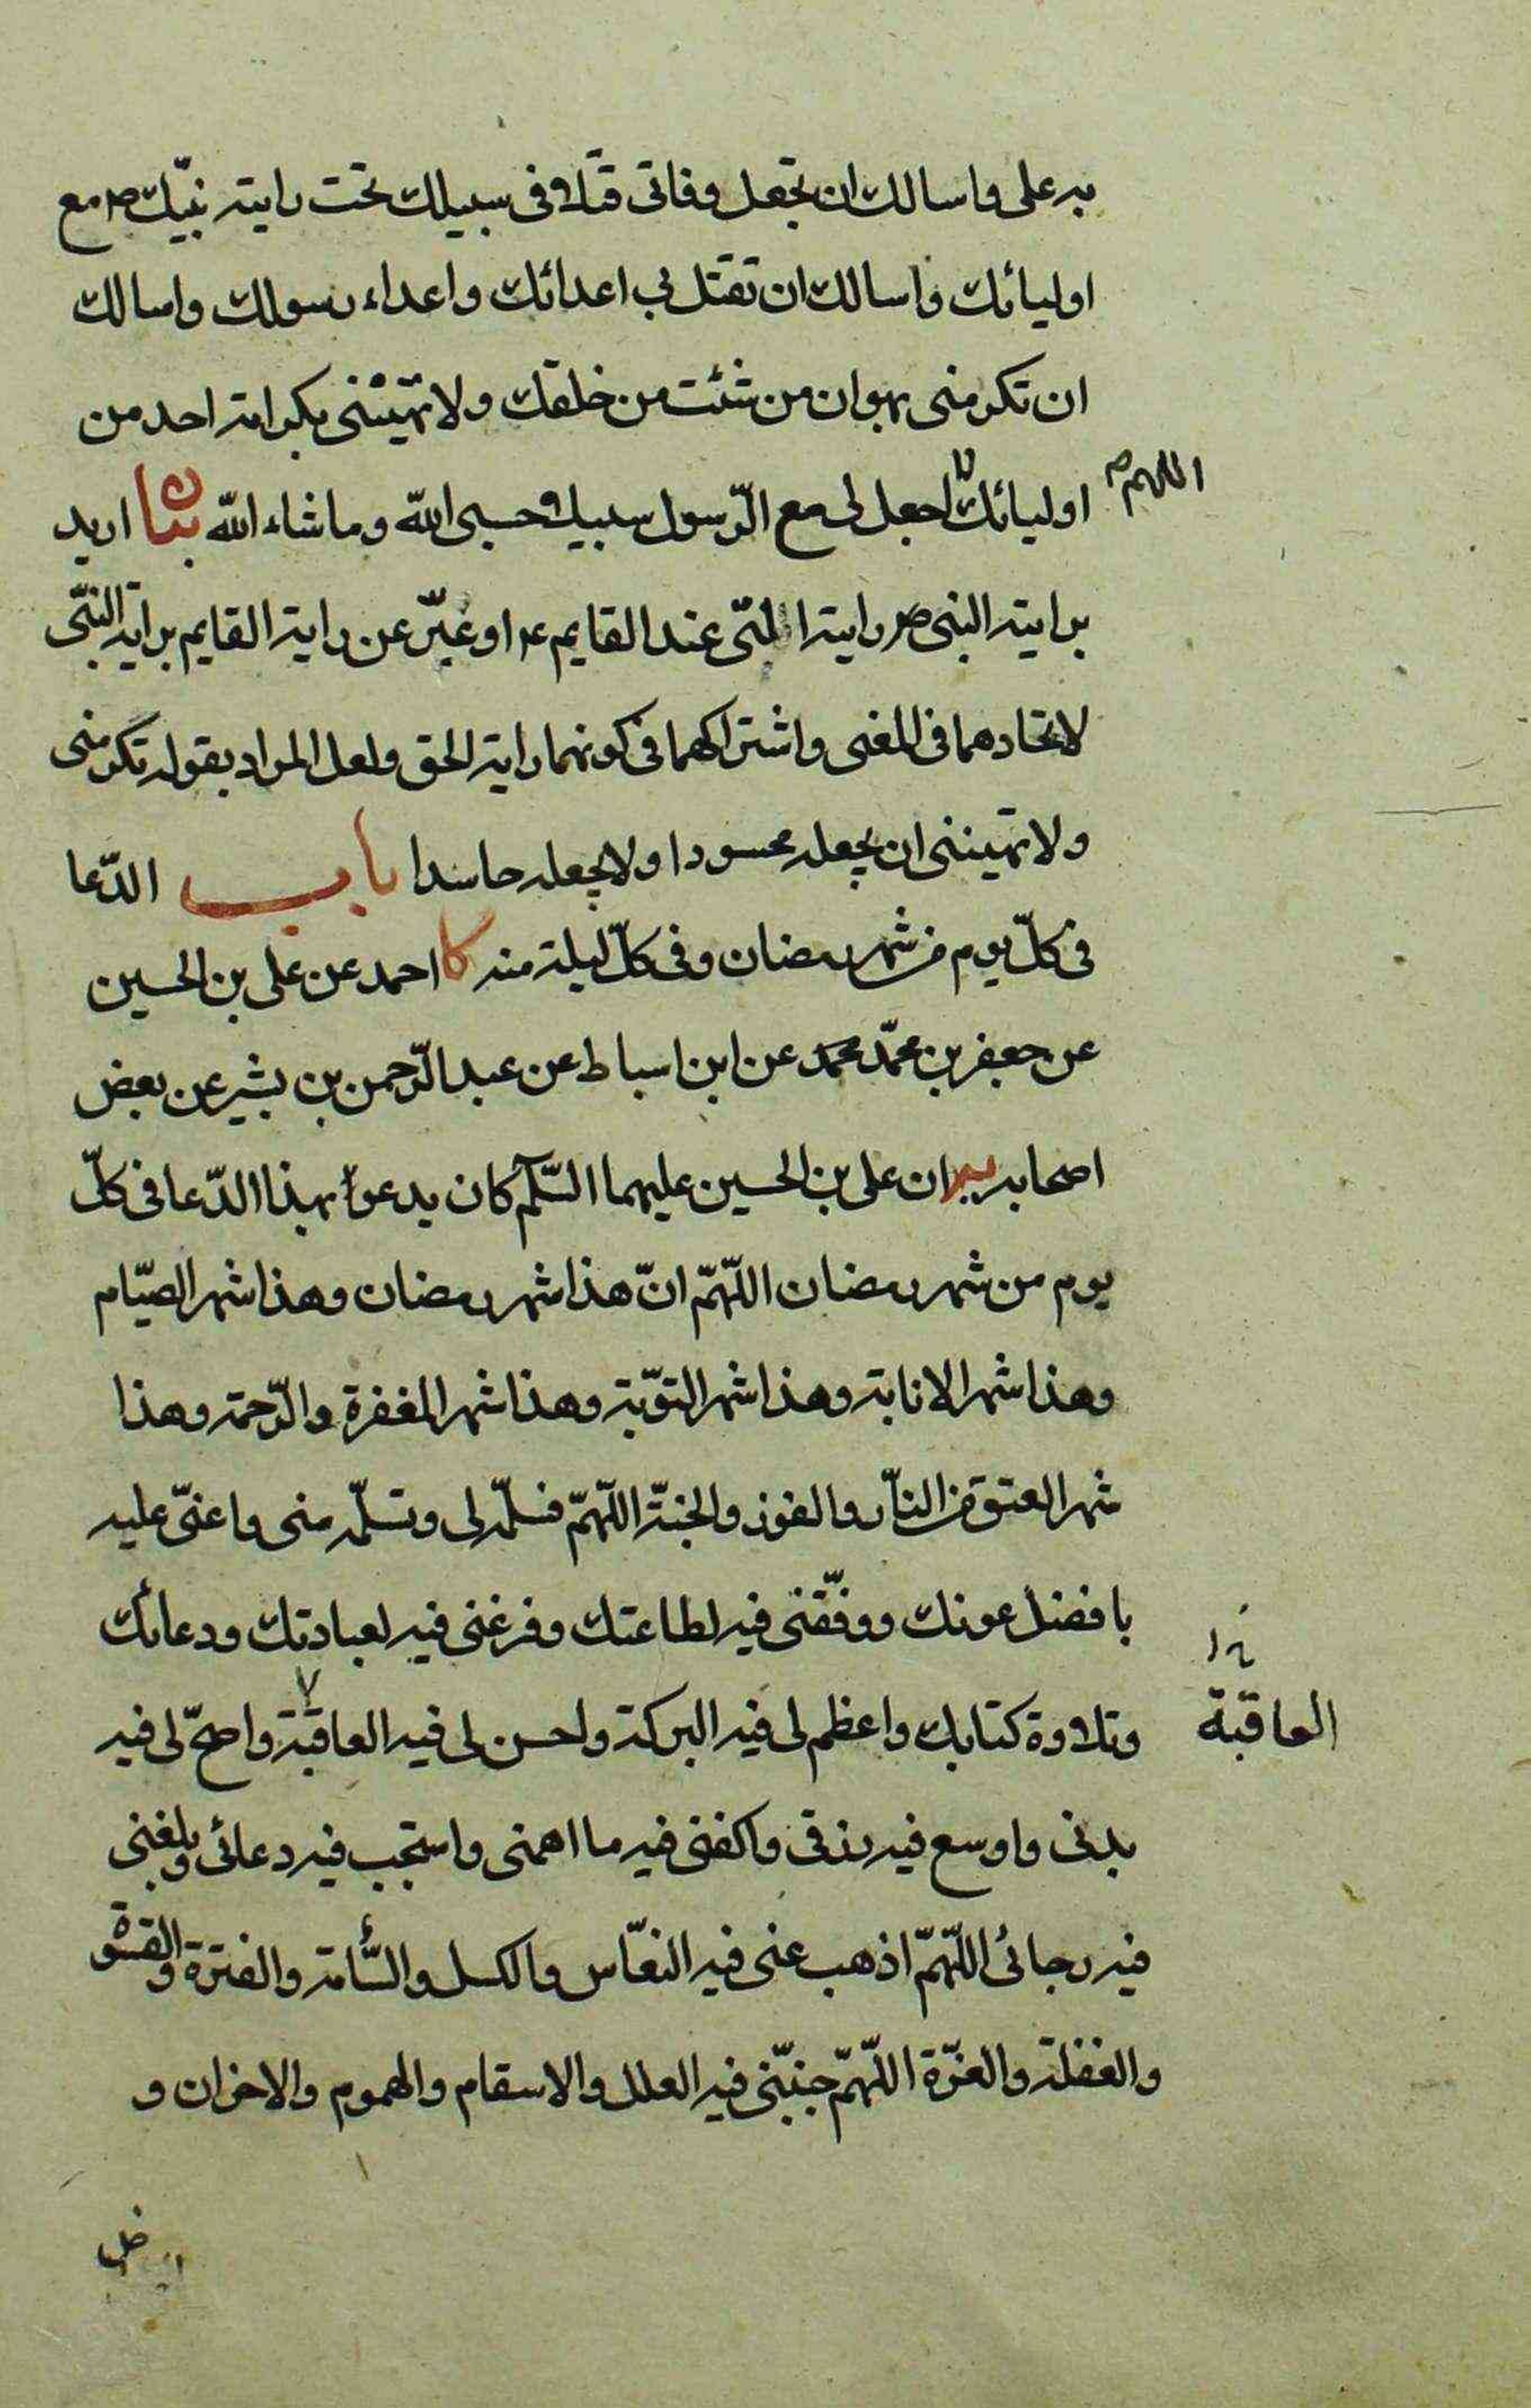 به على واسالك ان تجعل وفاتى قتلا فى سبيلك تحت راية نبيّك ص مع
اوليائك واسالك ان تقتل بى اعدائك واعداء رسولك واسالك
ان تكرمنى بهوان من شئت من خلقك ولا تهيننى بكرامة احد من
اللهم ص
اوليائك اجعل لى مع الرّسول سبيلا حسبى الله وما شاء الله بيان اريد
براية النبى ص راية الّتى عند القايم ع او عبّر عن راية القايم براية النبّى
لاتحادهما فى المعنى واشتراكهما فى كونهما راية الحق ولعل المراد بقوله تكرمنى
ولا تهيننى ان يجعله محسودا ولا يجعله حاسدا باب الدّعا
فى كلّ يوم من شهر رمضان وفى كلّ ليلة منه كا احمد عن على بن الحسين
عن جعفر بن محمّد محمد عن ابن اسباط عن عبد الرّحمن بن بشير عن بعض
اصحابه ان على بن الحسين عليهما السّلم كان يدعوا بهذا الدّعا فى كلّ
يوم من شهر رمضان اللّهمّ انّ هذا شهر رمضان وهذا شهر الصيّام
وهذا شهر الانابة وهذا شهر التوّبة وهذا شهر المغفرة والرّحمة وهذا
شهر العتق من النّار والفوز والجنّة اللّهمّ فسلّمه لى وتسلّمه منى واعنّى عليه
بافضل عونك ووفّقنى فيه لطاعتك وفرغنى فيه لعبادتك ودعائك
وتلاوة كتابك واعظم لى فيه البركة واحسن لى فيه العاقبة واصحّ لى فيه
العاقبة
بدنى واوسع فيه رزقى واكفنى فيه ما اهمنى واستجب فيه دعائى وبلغنى
فيه رجائى اللّهمّ اذهب عنى فيه النعّاس والكسل والسّأمة والفترة والقسوة
والغفلة والغرّة اللّهمّ جنبّنى فيه العلل والاسقام والهموم والاحزان و